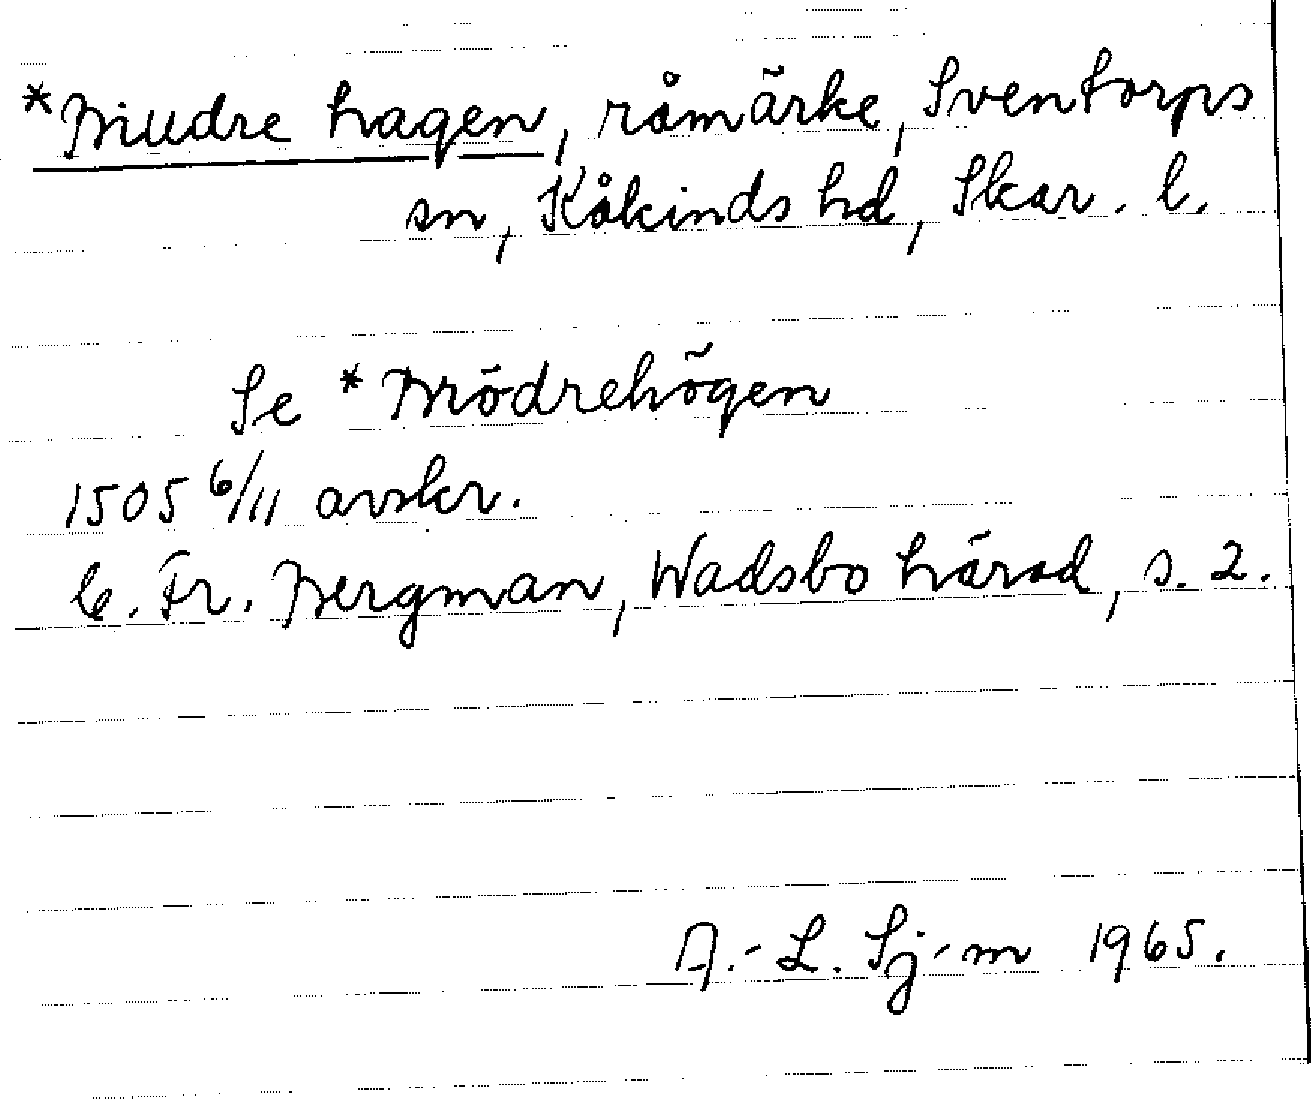 *Mudre hagen, råmärke, Sventorps
sn, Kåkinds hd, Skar. l.
Se *Mödrehögen
1505 6/11 avskr.
C. Fr. Bergman, Wadsbo härad, s. 2.
A.-L. Sj-m 1965.